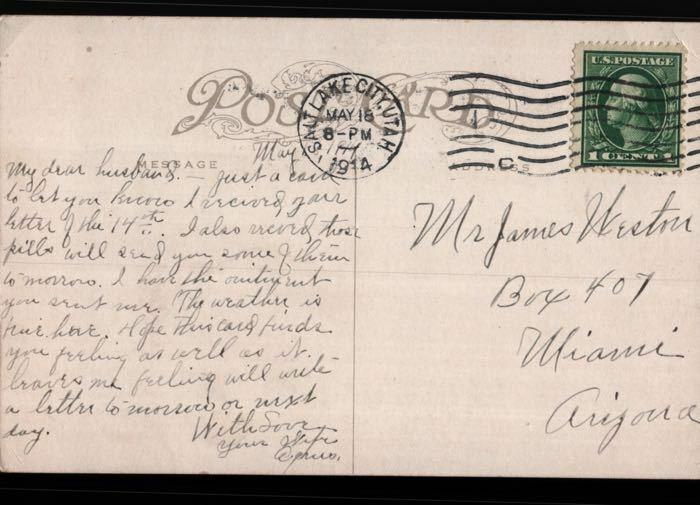 POST CARD
SALT LAKE CITY, UTAH
MAY 16
8-PM
1914
C
U.S. POSTAGE
1 CENT 1
MESSAGE
ADDRESS
May
My dear husband. — just a card
to let you know I recieved your
letter of the 14th. I also recved those
pills will send you some of them
to morrow. I have the ointment
you sent me. The weather is
fine here. Hope this card finds
you feeling as well as it
leaves me feeling will write
a letter to morrow or next
day.
With Love
Your Wife
Mr James Weston
Box 407
Miami
Arizona